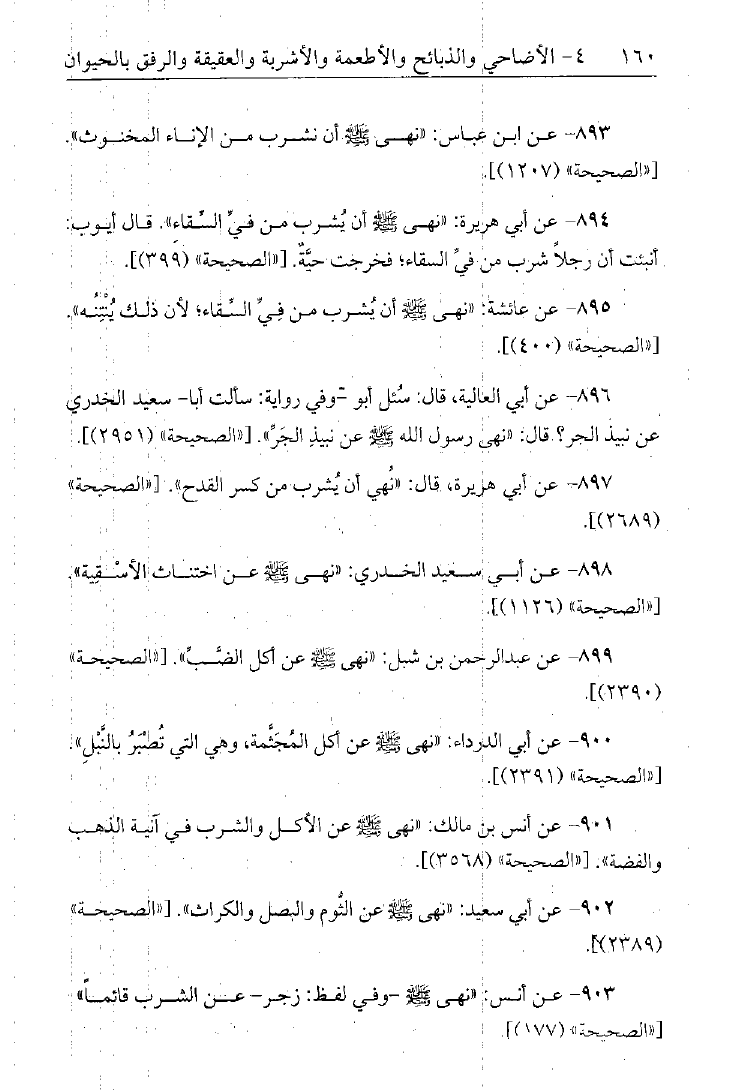 ١٦٠ ٤- الأضاحي والذبائح والأطعمة والأشربة والعقيقة والرفق بالحيوان
٨٩٣- عن ابن عباس: «نهى ﷺ أن نشرب من الإناء المخنوث».
[«الصحيحة» (١٢٠٧)].
٨٩٤- عن أبي هريرة: «نهى ﷺ أن يُشرب من فيِّ السِّقاء». قال أيوب:
أنبئت أن رجلاً شرب من فيِّ السقاء؛ فخرجت حيَّةٌ. [«الصحيحة» (٣٩٩)].
٨٩٥- عن عائشة: «نهى ﷺ أن يُشرب من فِيِّ السِّقاء؛ لأن ذلك يُنْتِنُه».
[«الصحيحة» (٤٠٠)].
٨٩٦- عن أبي العالية، قال: سُئل أبو -وفي رواية: سألت أبا- سعيد الخدري
عن نبيذ الجر؟ قال: «نهى رسول الله ﷺ عن نبيذِ الجَرِّ». [«الصحيحة» (٢٩٥١)].
٨٩٧- عن أبي هريرة، قال: «نُهي أن يُشرب من كسر القدح». [«الصحيحة»
(٢٦٨٩)].
٨٩٨- عن أبي سعيد الخدري: «نهى ﷺ عن اختناث الأسْقِية».
[«الصحيحة» (١١٢٦)].
٨٩٩- عن عبدالرحمن بن شبل: «نهى ﷺ عن أكل الضَّبِّ». [«الصحيحة»
(٢٣٩٠)].
٩٠٠- عن أبي الدرداء: «نهى ﷺ عن أكل المُجَثَّمة، وهي التي تُصْبَرُ بالنَّبْلِ».
[«الصحيحة» (٢٣٩١)].
٩٠١- عن أنس بن مالك: «نهى ﷺ عن الأكل والشرب في آنية الذهب
والفضة». [«الصحيحة» (٣٥٦٨)].
٩٠٢- عن أبي سعيد: «نهى ﷺ عن الثُّوم والبصل والكراث». [«الصحيحة»
(٢٣٨٩)].
٩٠٣- عن أنس: «نهى ﷺ -وفي لفظ: زجر- عن الشرب قائماً»
[«الصحيحة» (١٧٧)].